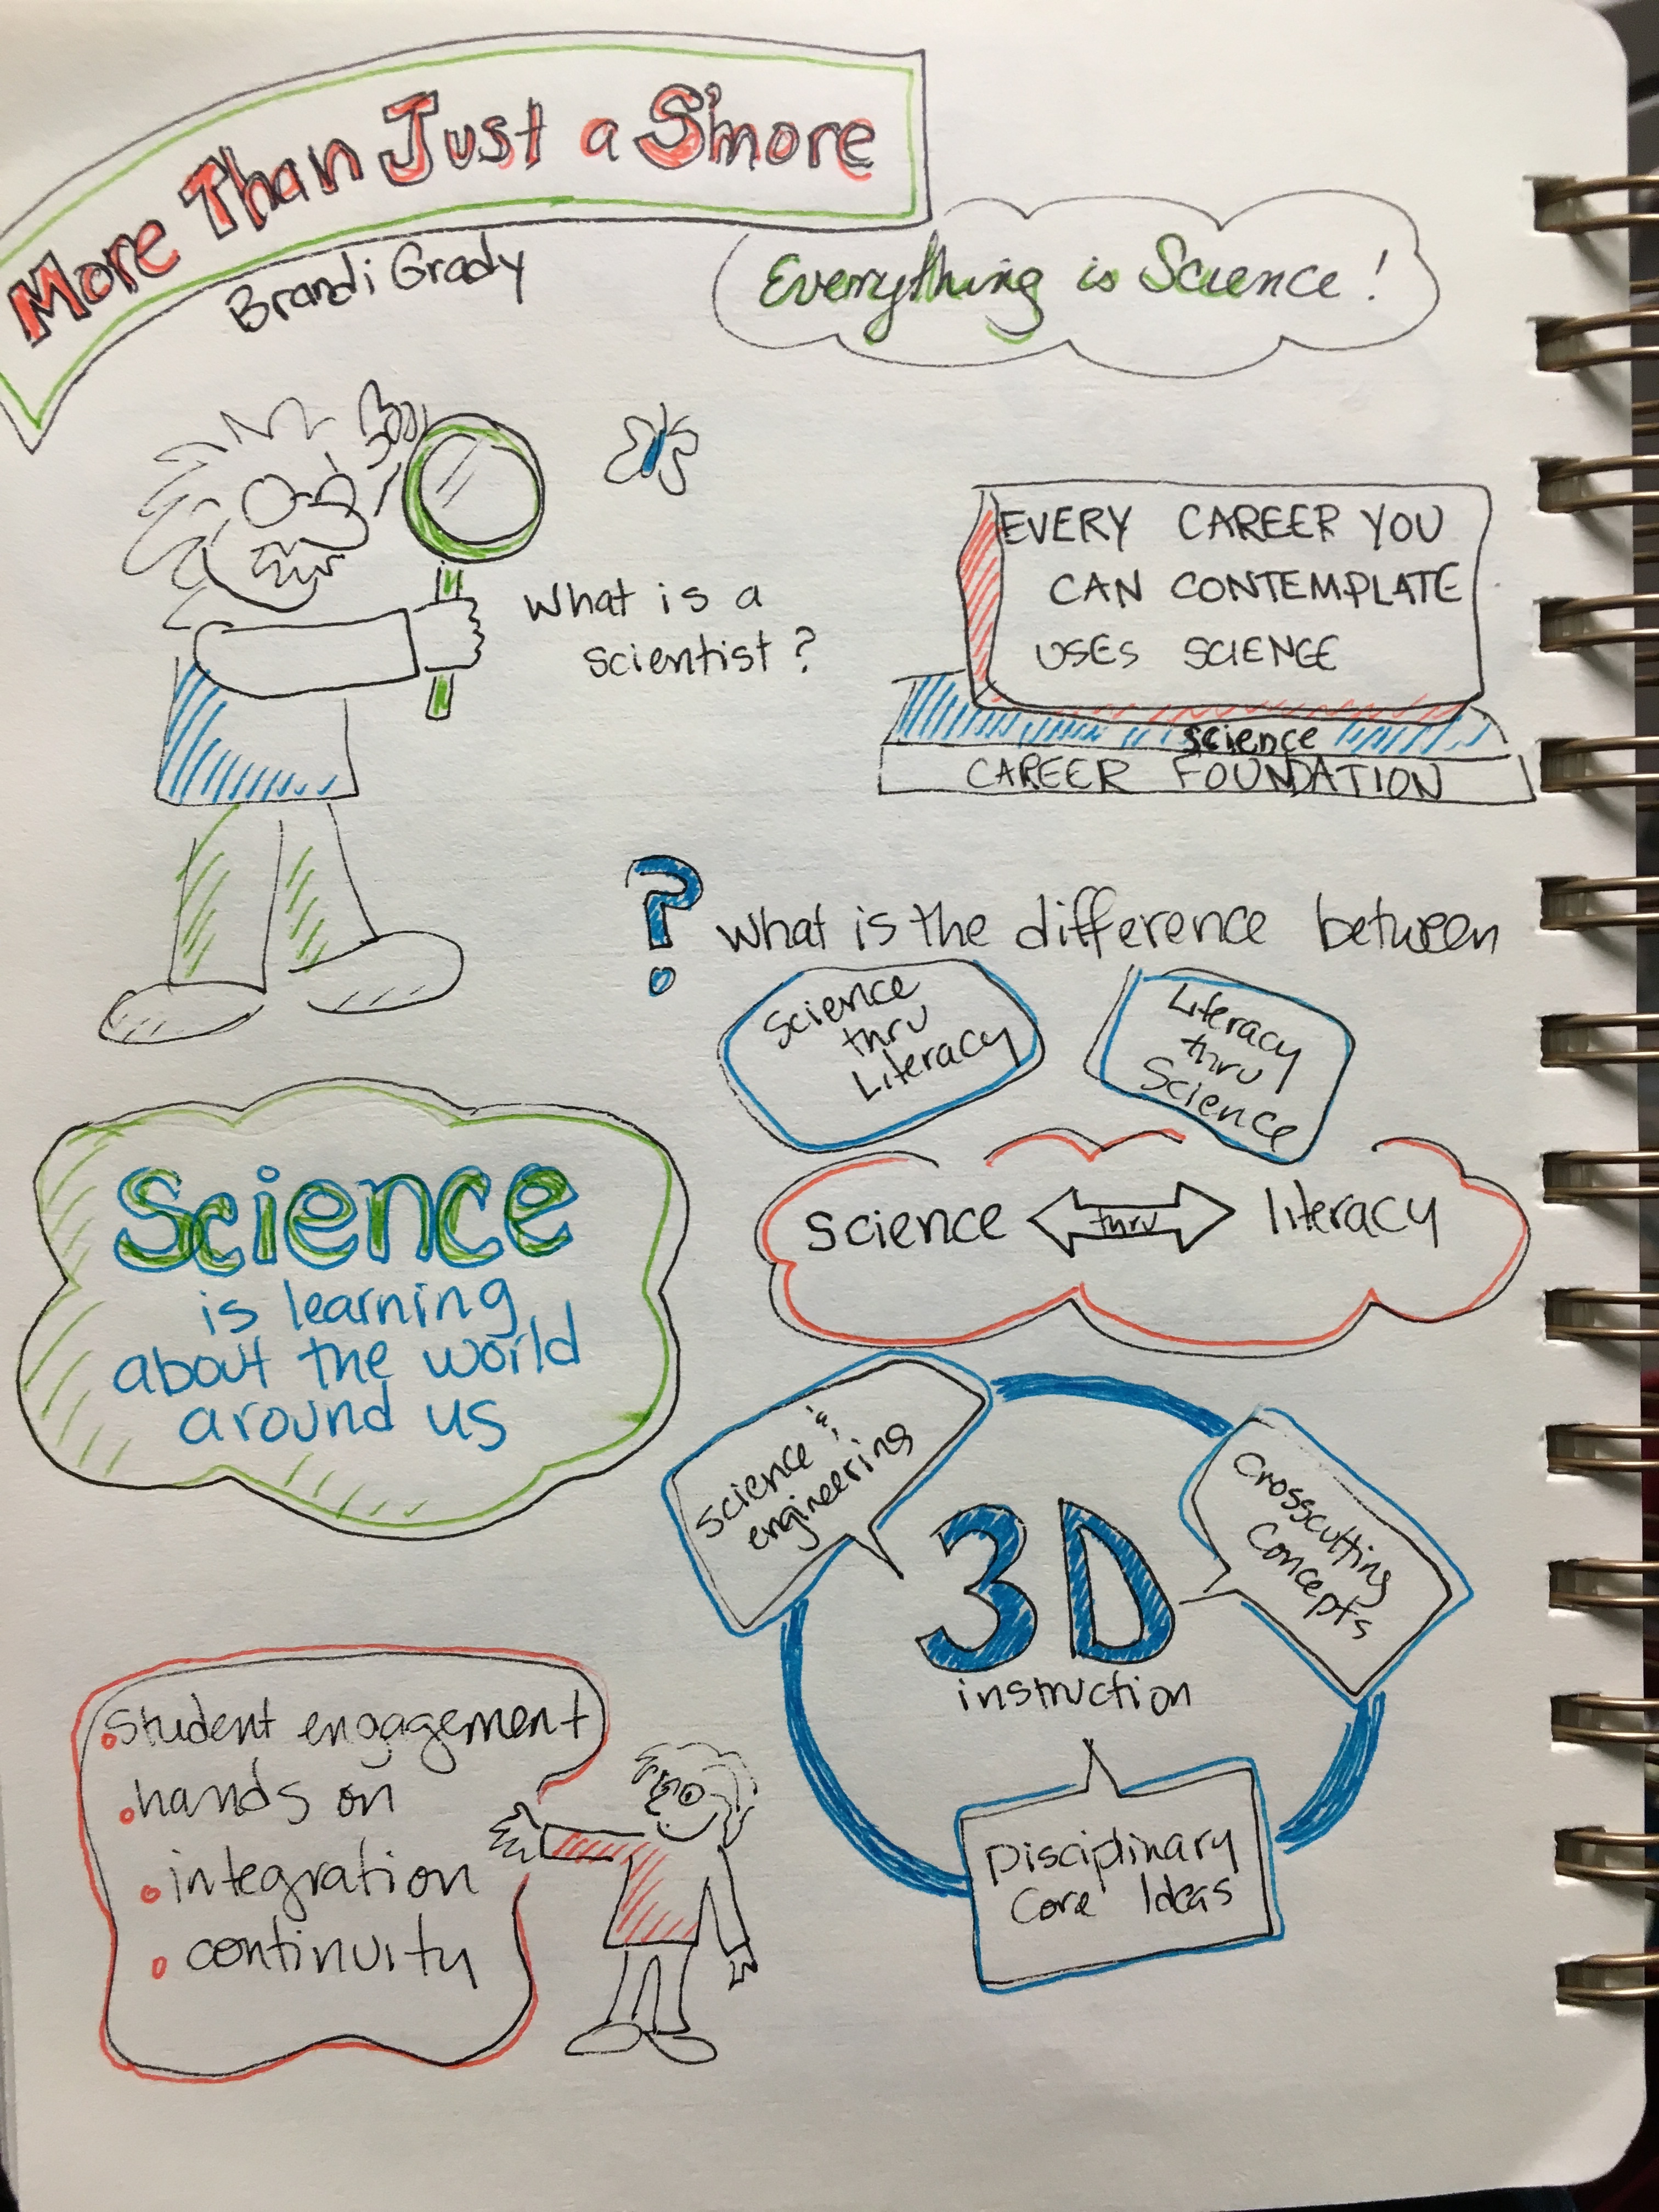 More Than Just a S'more
Brandi Grady
Everything is Science!
What is a
scientist?
EVERY CAREER YOU
CAN CONTEMPLATE
USES SCIENCE
science
CAREER FOUNDATION
? What is the difference between
Science
thru
Literacy
Literacy
thru
Science
Science thru literacy
Science
is learning
about the world
around us
Science &
engineering
Crosscutting
Concepts
3D
instruction
Disciplinary
Core Ideas
• student engagement
• hands on
• integration
• continuity